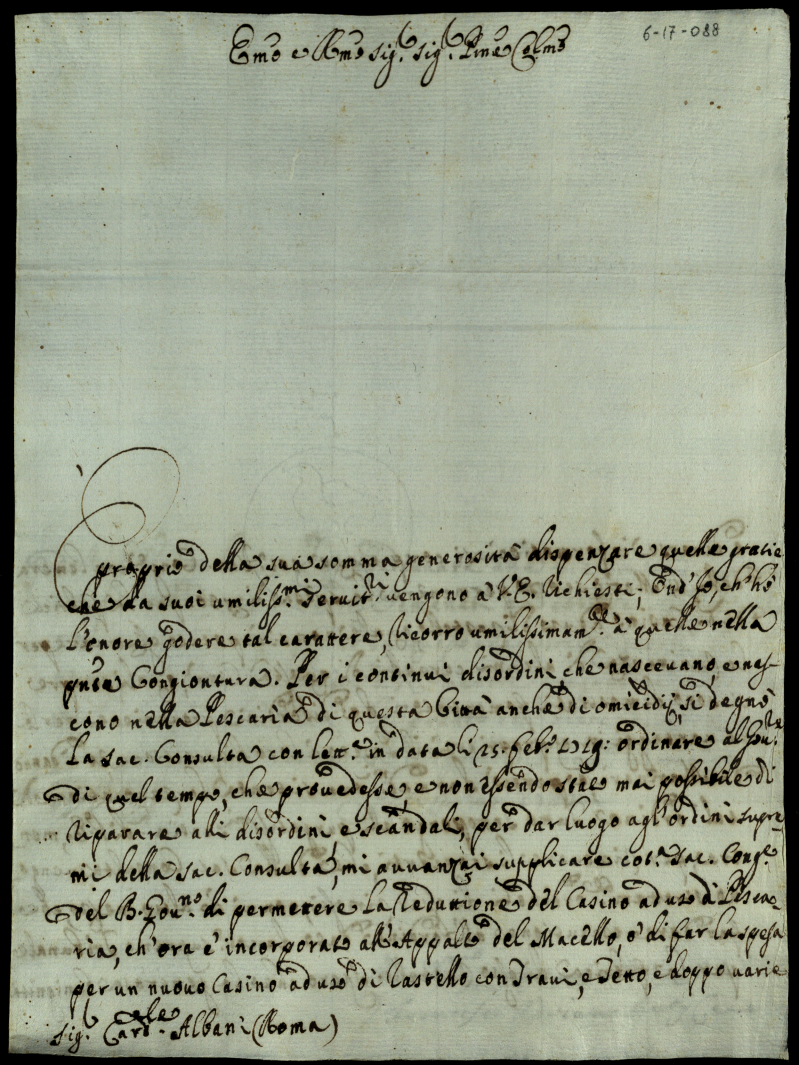 6-17-088
Emo e Rmo Sig.r Sig.r Pne Colmo
proprio della sua somma generosità dispenzare quelle gratie
che da suoi umiliss.mi Servit.ri vengono à V.E. richieste; Ond'Io, ch'hò
l'onore godere tal carattere, ricorro umilissimam.te à quelle nella
pnte Congiontura. Per i continui disordini che nascevano, e nes-
cono nella Pescaria di questa Città anche di omicidij, si degnò
la Sac. Consulta con lett.a in data li 25. feb.o 1719: ordinare al Gov.re
di quel tempo, che provedesse, e non essendo stato mai possibile di
riparare alli disordini, e scandali, per dar luogo agl'ordini supre-
mi della Sac. Consulta, mi avvanzai supplicare cot.a Sac. Cong.e
del B. Gov.no di permettere la reduttione del Casino ad uso di Pesca-
ria, ch'ora è incorporato all'Appalto del Macello, ò di far la spesa
per un nuovo Casino ad uso di rastello con Travi, e Tetto, e doppo varie
Sig.r Card.le Albani (Roma)